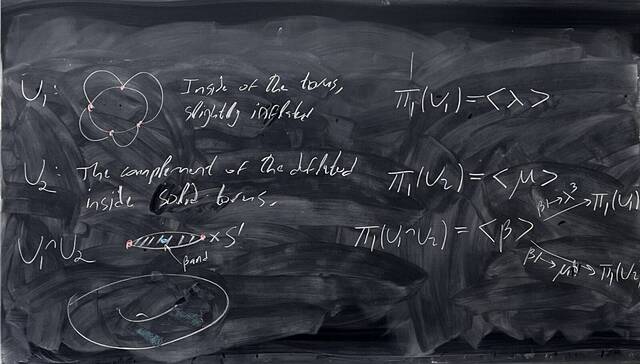 U₁: Inside of the torus,
slightly inflated
π₁(U₁) = <λ>
U₂: The complement of the deflated
inside solid torus.
π₁(U₂) = <μ>
U₁∩U₂ × S¹
band
π₁(U₁∩U₂) = <β>
β↦λ³ π₁(U₁)
β↦ π₁(U₂)